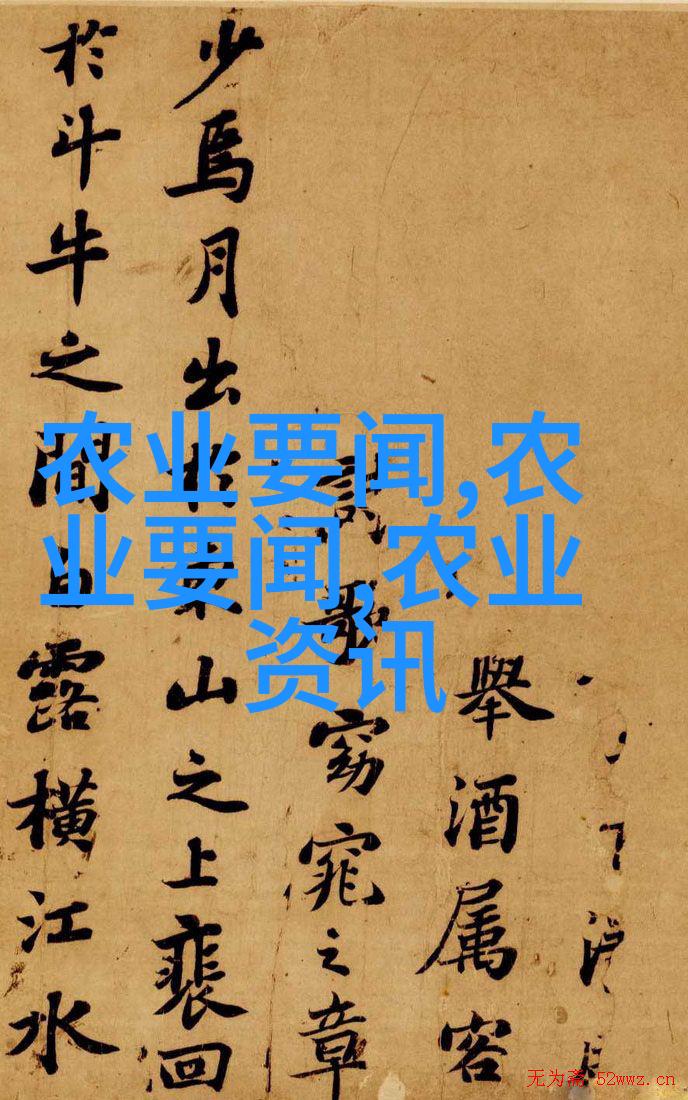 舉酒属客
歌窈窕之章
少焉月出於東山之上裵回
於斗牛之間白露橫江水
农业要闻,农
业要闻,农业
资讯
无为斋 52wwz.cn